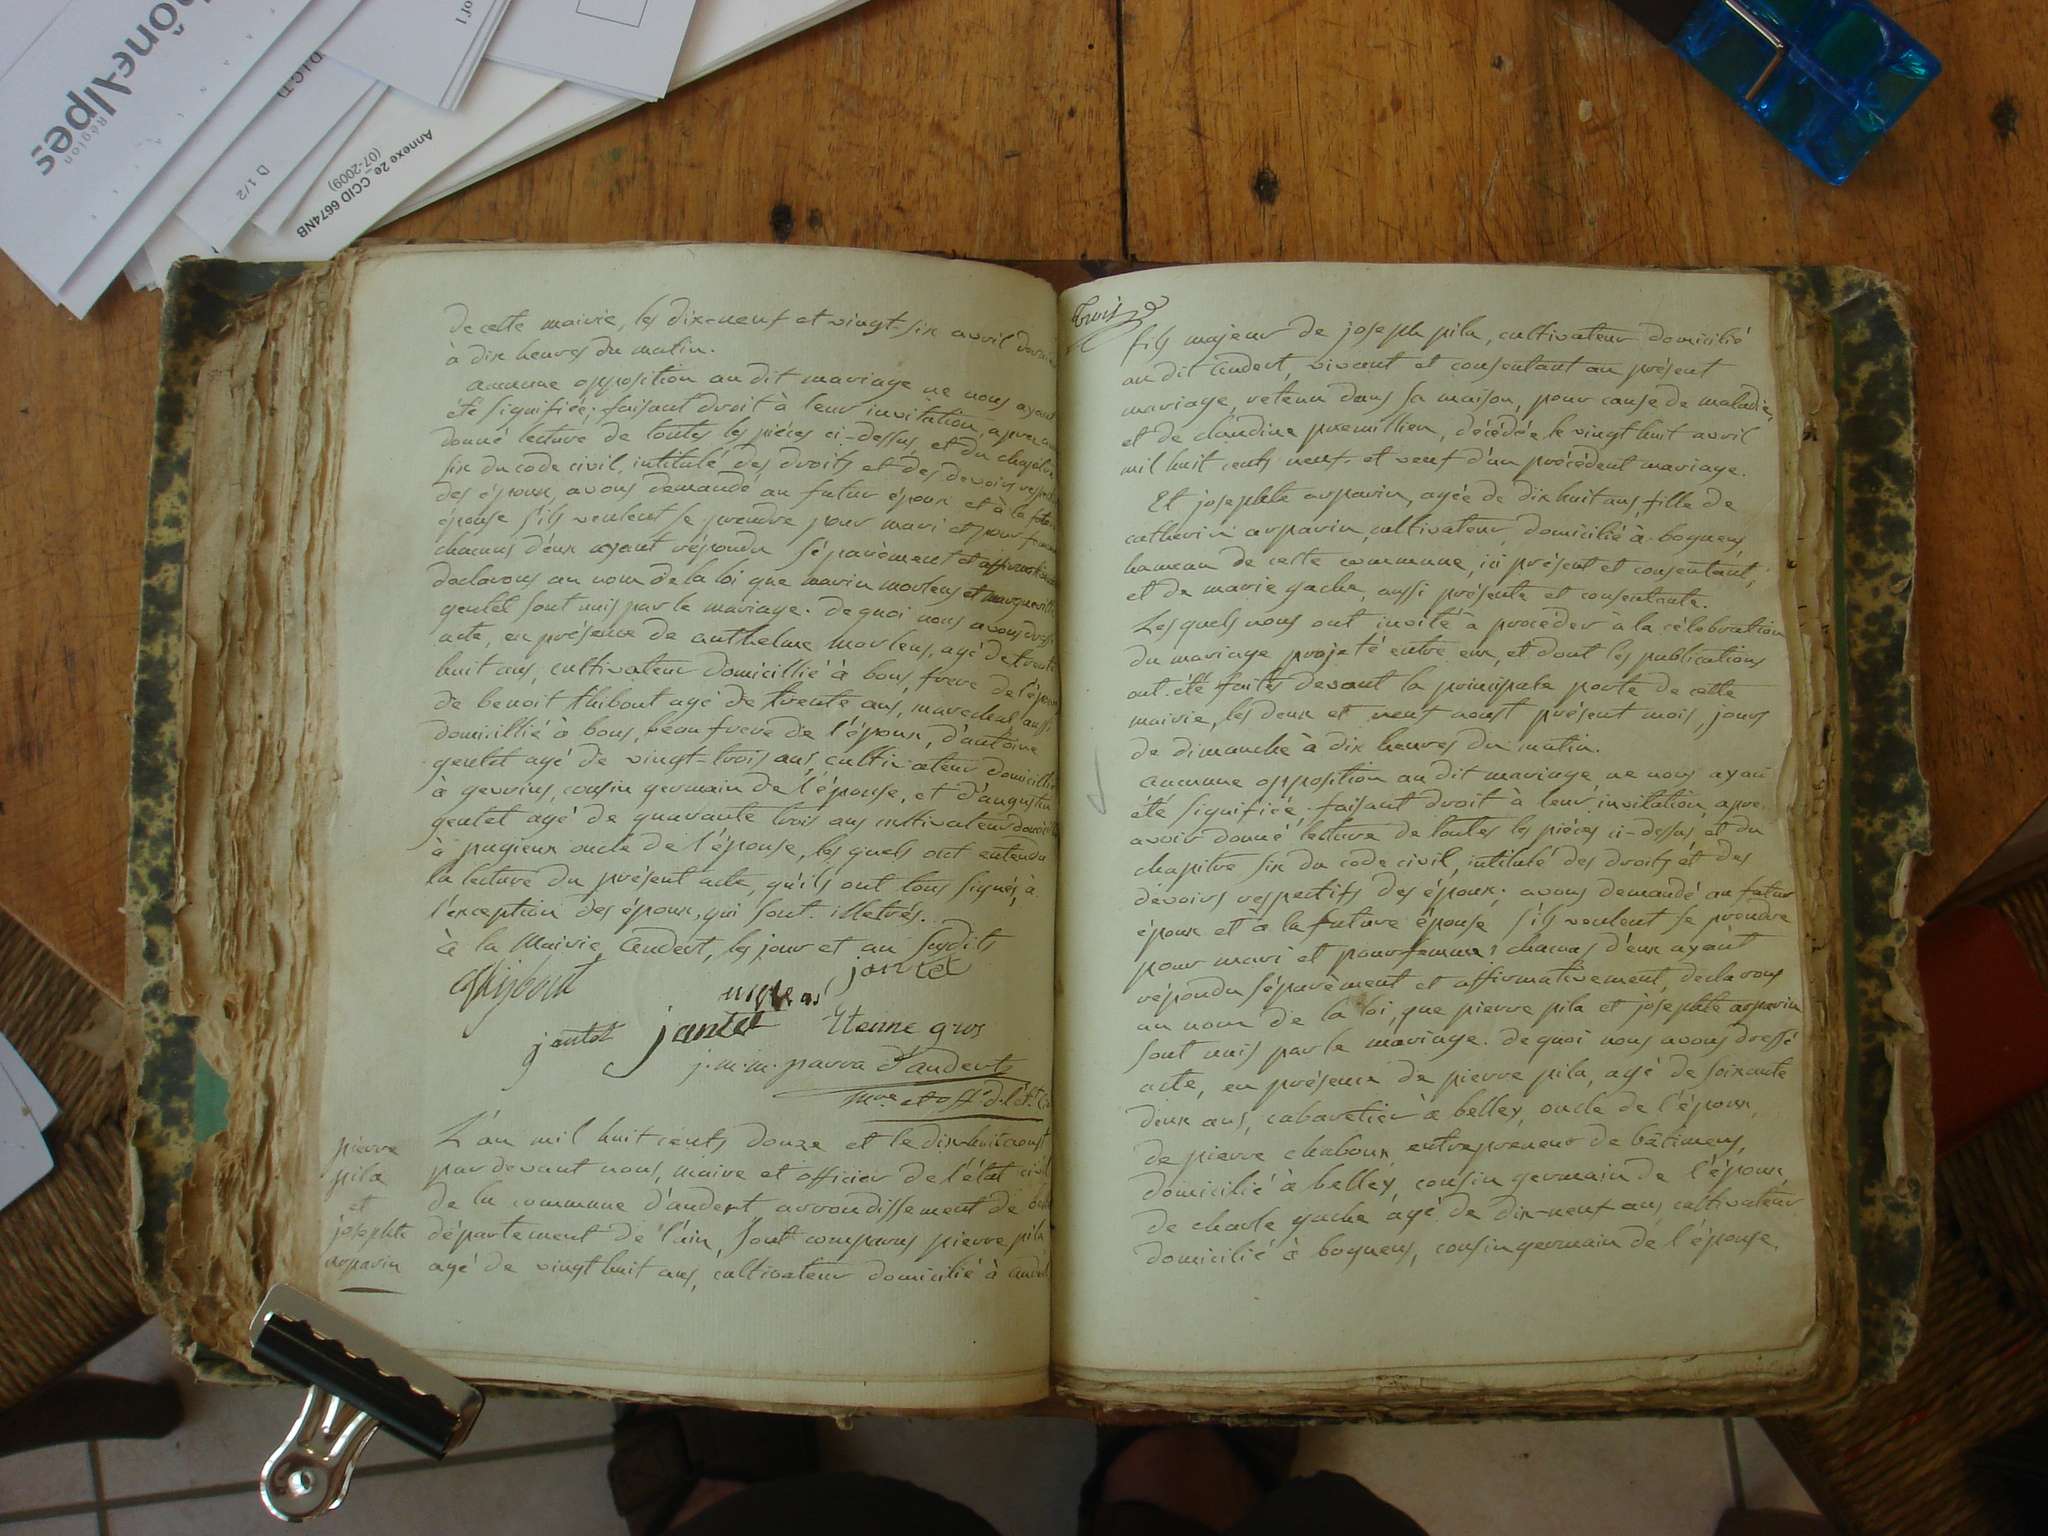 Rhône-Alpes
Région
D I C T)
of 1
D 1/2
Annexe 2e CCID 6674NB
(07-2009)
de cette mairie, les dix-neuf et vingt-six avril dernier
à dix heures du matin.
aucunne opposition au dit mariage ne nous ayant
été signifiée; faisant droit à leur invitation, apres avoir
donné lecture de toutes les piéces ci-dessus, et du chapitre
six du code civil, intitulé des droits et des devoirs respectifs
des époux, avons demandé au futur époux et à la future
épouse s'ils veulent se prendre pour mari et pour femme
chacuns d'eux ayant répondu séparèment et affirmativement
declarons au nom de la loi que marin morlens et marguerite
gentet sont unis par le mariage. de quoi nous avons dressé
acte, en présence de anthelme morlens, agé de trente
huit ans, cultivateur domicillié à bons frere de l'époux
de benoit thibout agé de trente ans, marechal aussi
domicillié à bons, beau frere de l'époux, d'antoine
gentet agé de vingt-trois ans, cultivateur domicillié
à gevrins, cousin germain de l'épouse, et d'augustin
gentet agé de quarante trois ans cultivateur domicillié
à pugieux oncle de l'épouse, les quels ont entendu
la lecture du présent acte, qu'ils ont tous signés, à
l'exception des époux, qui sont illetrés.
à la Mairie d'andert, les jour et an susdits
jantet
jantet jantet Etienne gros
j. m. m. parra d'andert
mre et off. de l'ét. c.
pierre
pila
et
josephte
arparin
L'an mil huit cents douze et le dix-huit aoust
par devant nous, maire et officier de l'état civil
de la commune d'andert arrondissement de belley
département de l'ain, sont comparus pierre pila
agé de vingt huit ans, cultivateur domicilié à andert
trois
fils majeur de joseph pila, cultivateur domicilié
au dit andert, vivant et consentant au présent
mariage, retenu dans sa maison, pour cause de maladie,
et de claudine premillieu, décédée le vingt huit avril
mil huit cents neuf. et veuf d'un précédent mariage.
Et josephte arparin, agée de dix huit ans, fille de
catherin arparin, cultivateur, domicilié à bognens,
hameau de cette commune, ici présent et consentant;
et de marie gache, aussi présente et consentante.
Les quels nous ont invité à procéder à la célébration
du mariage projeté entre eux, et dont les publications
ont été faites devant la principale porte de cette
mairie, les deux et neuf aoust présent mois, jours
de dimanche à dix heures du matin.
aucunne opposition au dit mariage ne nous ayant
été signifiée; faisant droit à leur invitation, apre
avoir donné lecture de toutes les piéces ci-dessus, et du
chapitre six du code civil, intitulé des droits et des
dévoirs respectifs des époux; avons demandé au futur
époux et à la future épouse s'ils veulent se prendre
pour mari et pour femme; chacuns d'eux ayant
répondu séparèment et affirmativement, declarons
au nom de la loi, que pierre pila et josephte arparin
sont unis par le mariage. de quoi nous avons dressé
acte, en présence de pierre pila, agé de soixante
deux ans, cabaretier à belley, oncle de l'époux,
de pierre chaboux entrepreneur de bâtimens,
domicilié à belley, cousin germain de l'époux,
de charle gache agé de dix-neuf ans cultivateur
domicilié à bognens, cousin germain de l'épouse,